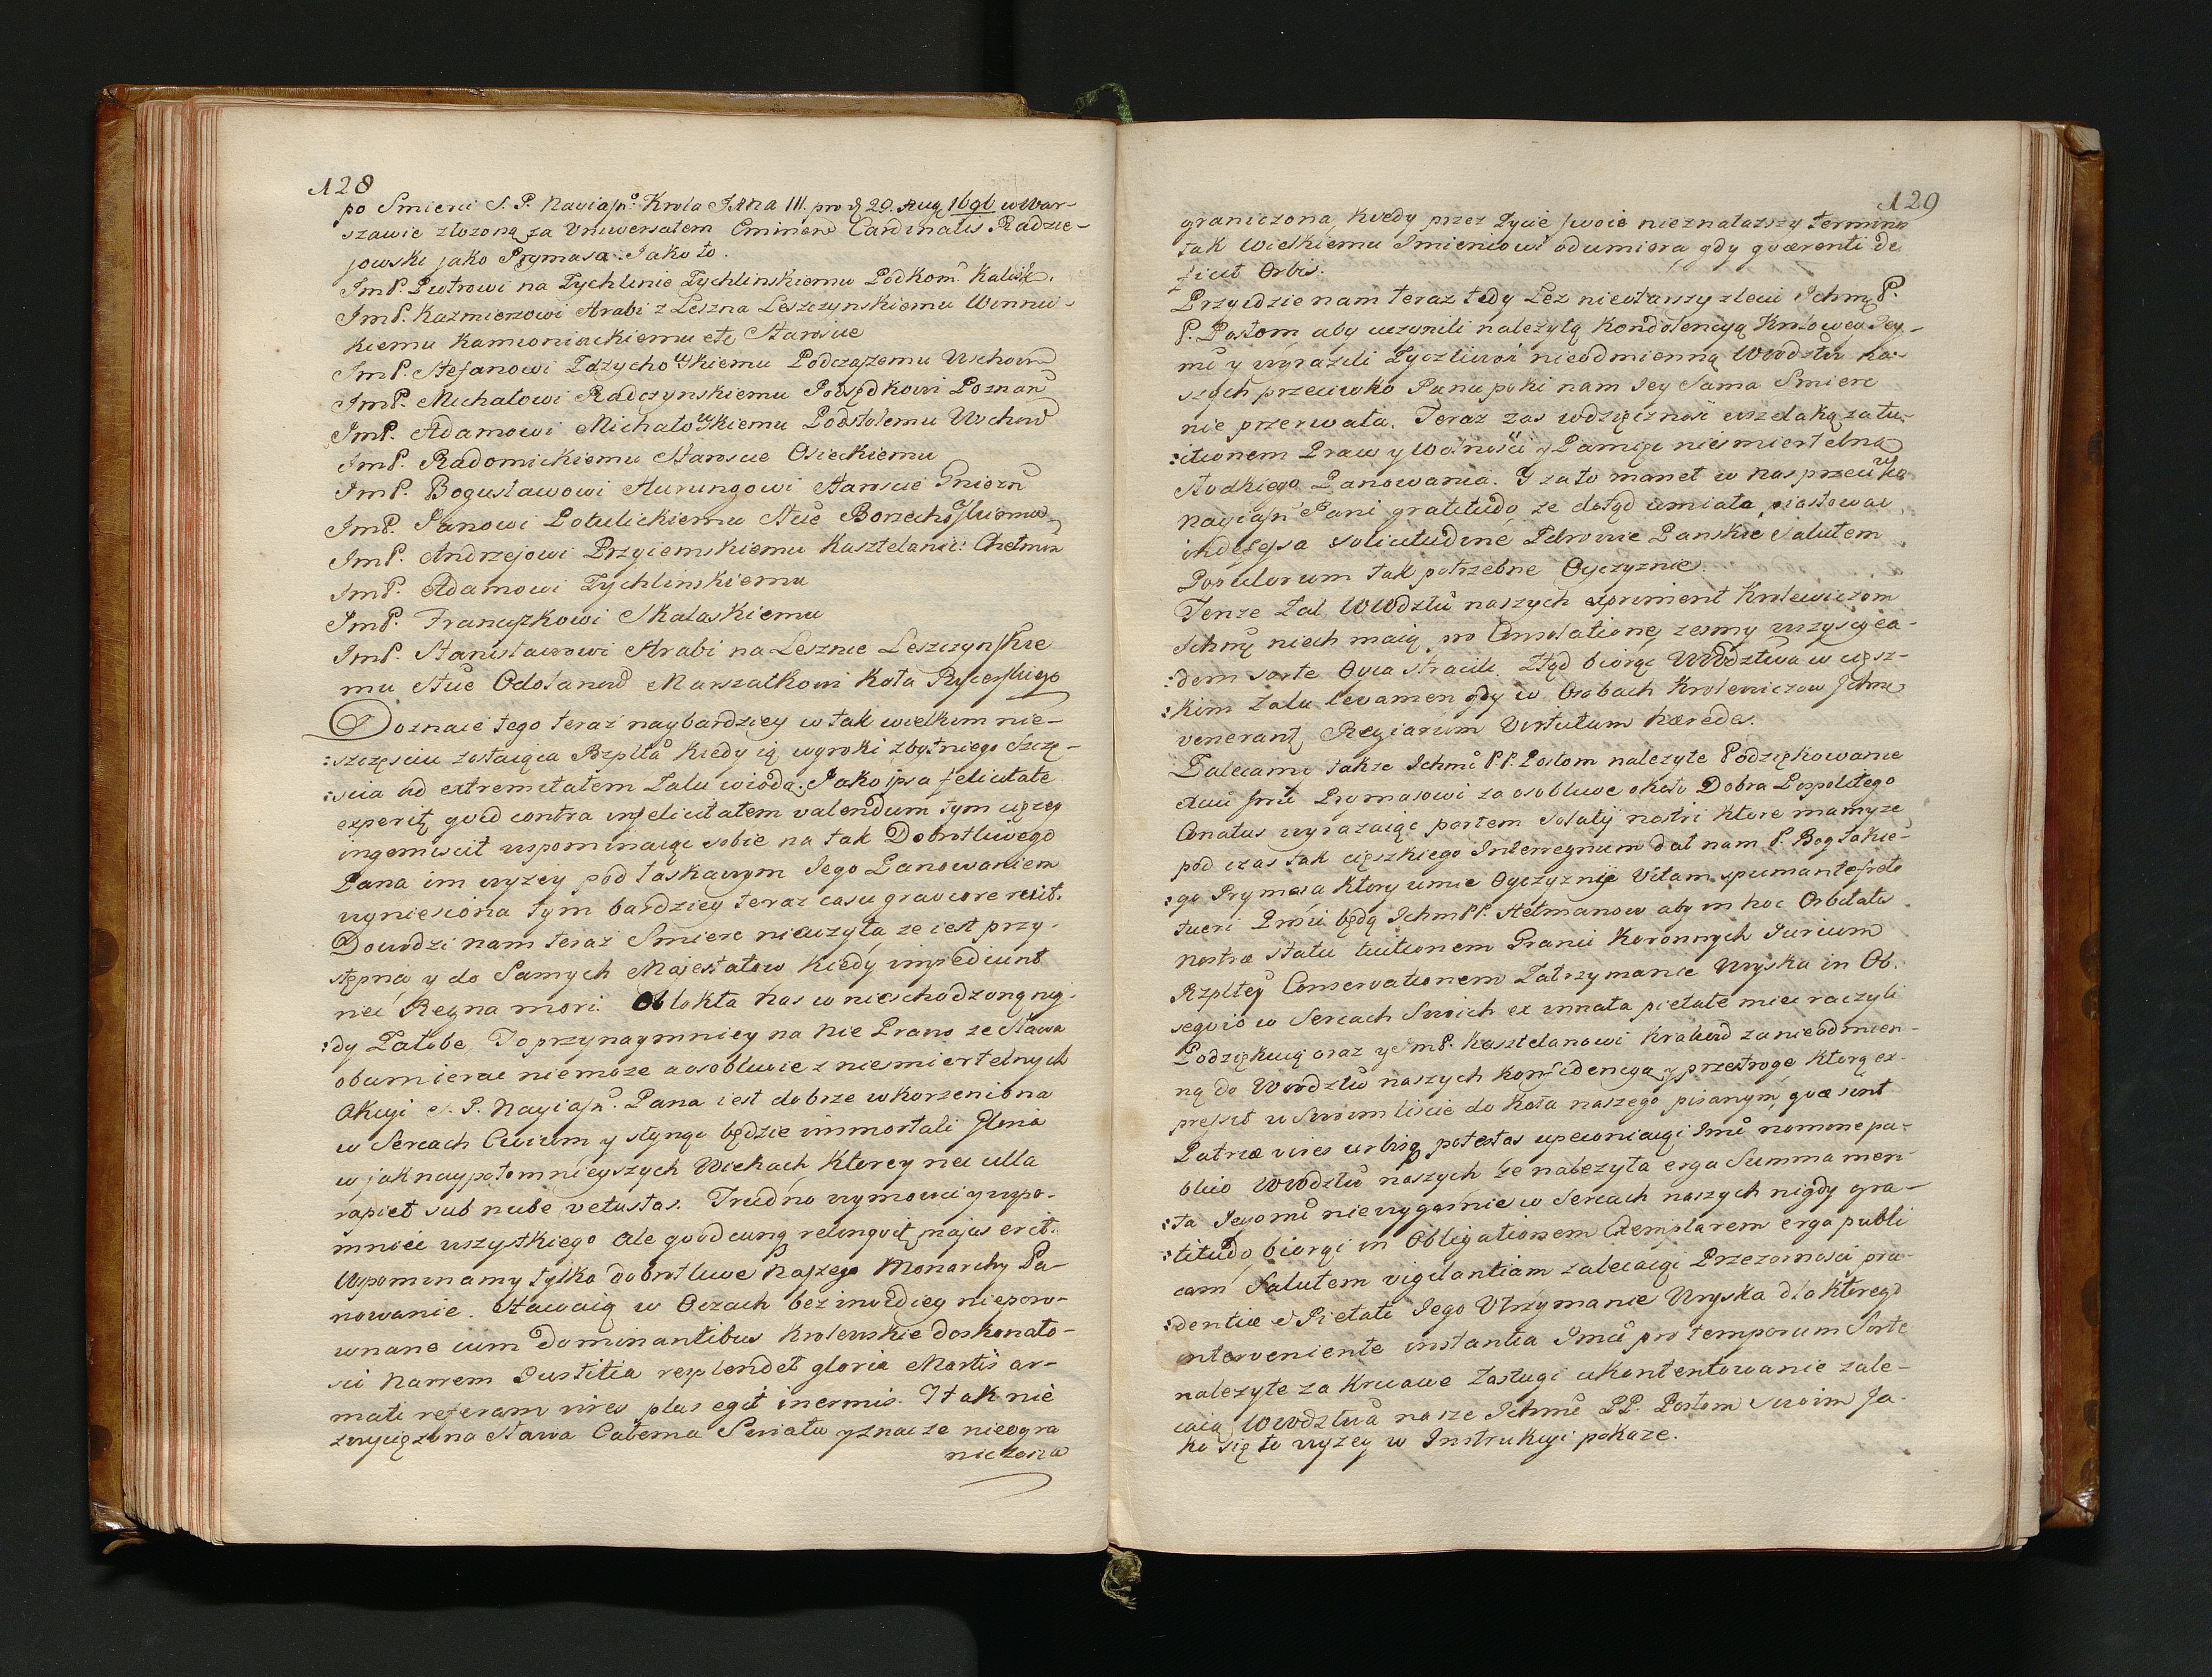 128
po Smierci S. P. Nayiasn.o Krola JANA III. pro d 29. Aug 1696 w War-
szawie złozoną za Uniwersałem Eminen Cardinalis Radzie-
jowski jako Prymasa. Jako to.
ImP. Piotrowi na Zychlinie Zychlinskiemu Podkom. Kalisk.
ImP. Kazmierzowi Hrabi z Leszna Leszczynskiemu Winnic-
kiemu Kamioniackiemu etc Staroscie
ImP. Stefanowi Zdzychowskiemu Podczaszemu Wschow
ImP. Michałowi Radczynskiemu Porządkowi Poznan
ImP. Adamowi Michałowskiemu Podstolemu Wschow
ImP. Radomickiemu Staroscie Osieckiemu
ImP. Bogusławowi Unrungowi Staroscie Gniezn
ImP. Janowi Potulickiemu Stcie Borzechowskiemu
ImP. Andrzejowi Przyiemskiemu Kasztelanic: Chełmin
ImP. Adamowi Zychlinskiemu
ImP. Franciszkowi Skalaskiemu
ImP. Stanisławowi Hrabi na Lesznie Leszczynskie
mu Stcie Odolanow Marszałkowi Koła Rycerskiego
Doznaie tego teraz naybardziey w tak wielkim nie-
:szczęsciu zostaiąca Rzplta kiedy ią wyroki zbytniego szczę-
:scia ad extremitatem Zalu wiodą. Jako ipsa felicitate
experitę qvod contra infelicitatem valendum tym więcey
ingemiscit wspominaiąc sobie na tak Dobrotliwego
Pana im wyzey pod łaskawym Jego Panowaniem
wyniesiona tym bardziey teraz casu graviore ruit.
Dowodzi nam teraz Smierc nieuzyta ze iest przy-
stępna y do Samych Majestatow kiedy impediunt
nec Regna mori. Oblokła nas w nieschodzoną nig-
:dy Załobę, To przynaymniey na nie Prawo ze Sława
obumierac niemoze a osobliwie z niesmiertelnych
Akcyi S. P. Nayiasn. Pana iest dobrze wkorzeniona
w Sercach Civium y słynąc będzie immortali Gloria
w jak naypotomnieyszych Wiekach ktorey nec ulla
rapiet sub nube vetustas. Trudno wymowic y wspo-
mniec wszystkiego ale qvodcunq relinqvit majus erit.
Wspominamy tylko dobrotliwe Naszego Monarchy Pa-
nowanie. Stawaią w Oczach bez inwidiey nieporo-
wnane cum Dominantibus Krolewskie doskonało-
sci Narrem Justitia resplendet gloria Martis ar-
mati referam vires plus egit inermis. I tak nie
zwyciężona Sława Całemu Swiatu yznac ze nieogra
niczona
129
graniczona, kiedy przez Zycie swoie nieznalazszy termino
tak Wielkiemu Imieniowi odumiera gdy qværenti de
ficit Orbis.
Przydzie nam teraz tedy Lez nieotarszy zlecic Ichm P.
P. Posłom aby uczynili nalezytą kondolencyą Krolowey Jey-
mc y wyrazili Zyczliwosc nieodmienną Wwdztw na-
szych przeciwko Panu poki nam Jey Sama Smierc
nie przerwała. Teraz zas wdzięcznosc wszelaką za tu-
:itionem Praw y Wolnosci y Pamięc niesmiertelną
słodkiego Panowania. I za to manet w nas przeciwko
Nayiasn Pani gratitudo ze dotąd umiała piastowac
indefessa solicitudine Zdrowie Panskie Salutem
Populorum tak potrzebne Oyczyznie.
Tenze Zal Wwdztw naszych expriment Krolewiczom
Ichmc niech maią pro Consolatione zesmy wszyscy ea-
:dem sorte Oyca stracili. Ztąd biorąc Wwdztwa w cięsz-
:kim Zalu levamen gdy w Osobach Krolewiczow Ichmc
venerant Regiarum Virtutum hæredes.
Zalecamy takze Ichmc P.P. Posłom nalezyte Podziękowanie
Xciu Jmci Prymasowi za osobliwe około Dobra Pospolitego
Conatus wyrazaiąc partem Solatij nostri ktore mamy ze
pod czas tak cięszkiego Interregnum dał nam P. Bog takie-
:go Prymasa ktory umie Oyczyznie Vitam spumante freto
tueri Prosic będą Ichm PP. Hetmanow aby in hoc Orbitatis
nostræ statu tuitionem Granic Koronnych Jurium
Rzpltey Conservationem Zatrzymanie Woyska in Ob-
seqvio w Sercach Swoich ex innata pietate miec raczyli
Podziękuią oraz y JmP. Kasztelanowi Krakow za nieodmien-
ną do Wwdztw naszych Konfidencyą y przestrogę ktorą ex-
pressit w Swoim liscie do koła naszego pisanym, qvæ sunt
Patriæ vires urbisq potestas upewniaiąc Imc nomine pu-
blico Wwdztw naszych ze nalezyta erga Summa meri
:ta Jegomc niewygasnie w Sercach naszych nigdy gra-
:titudo, biorąc in Obligationem Exemplarem erga publi
cam Salutem vigilantiam zalecaiąc Przezornosci pru-
:dentiæ et Pietati Jego Utrzymanie Woyska dla ktorego
interveniente instantia Imci pro temporum Sorte
nalezyte za Krwawe Zasługi ukontentowanie zale-
caią Wwdztwa nasze Ichmc PP. Posłom Swoim Ja-
ko się to wyzey w Instrukcyi pokaze.